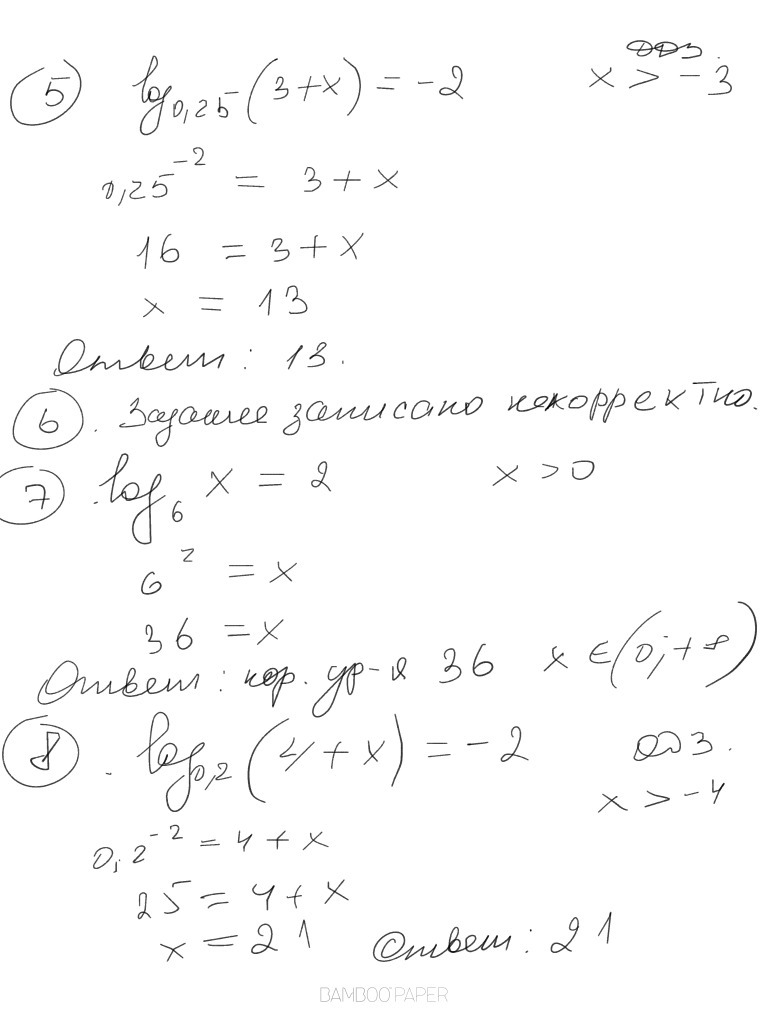 ОДЗ.
5 log0,25(3+x) = -2 x > -3
0,25^-2 = 3 + x
16 = 3 + x
x = 13
Ответ: 13.
6. Задание записано некорректно.
7 log6 x = 2 x > 0
6^2 = x
36 = x
Ответ: кор. ур-я 36 x ∈ (0; +∞)
8. log0,2(4 + x) = -2 ОДЗ.
x > -4
0,2^-2 = 4 + x
25 = 4 + x
x = 21 Ответ: 21
BAMBOO PAPER